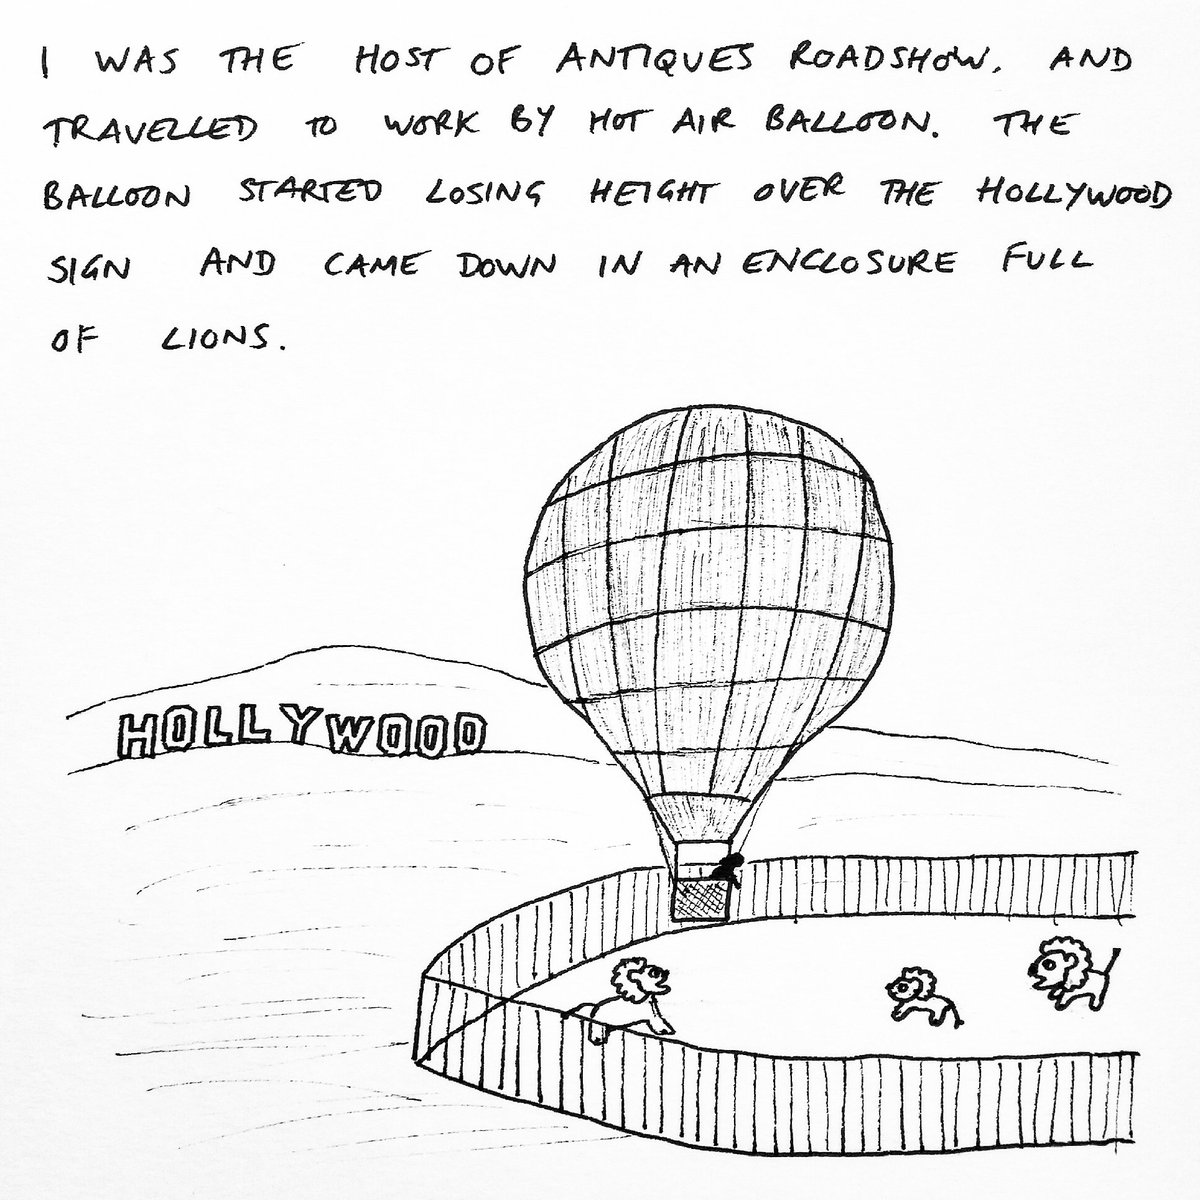 I WAS THE HOST OF ANTIQUES ROADSHOW, AND
TRAVELLED TO WORK BY HOT AIR BALLOON. THE
BALLOON STARTED LOSING HEIGHT OVER THE HOLLYWOOD
SIGN AND CAME DOWN IN AN ENCLOSURE FULL
OF LIONS.
HOLLYWOOD